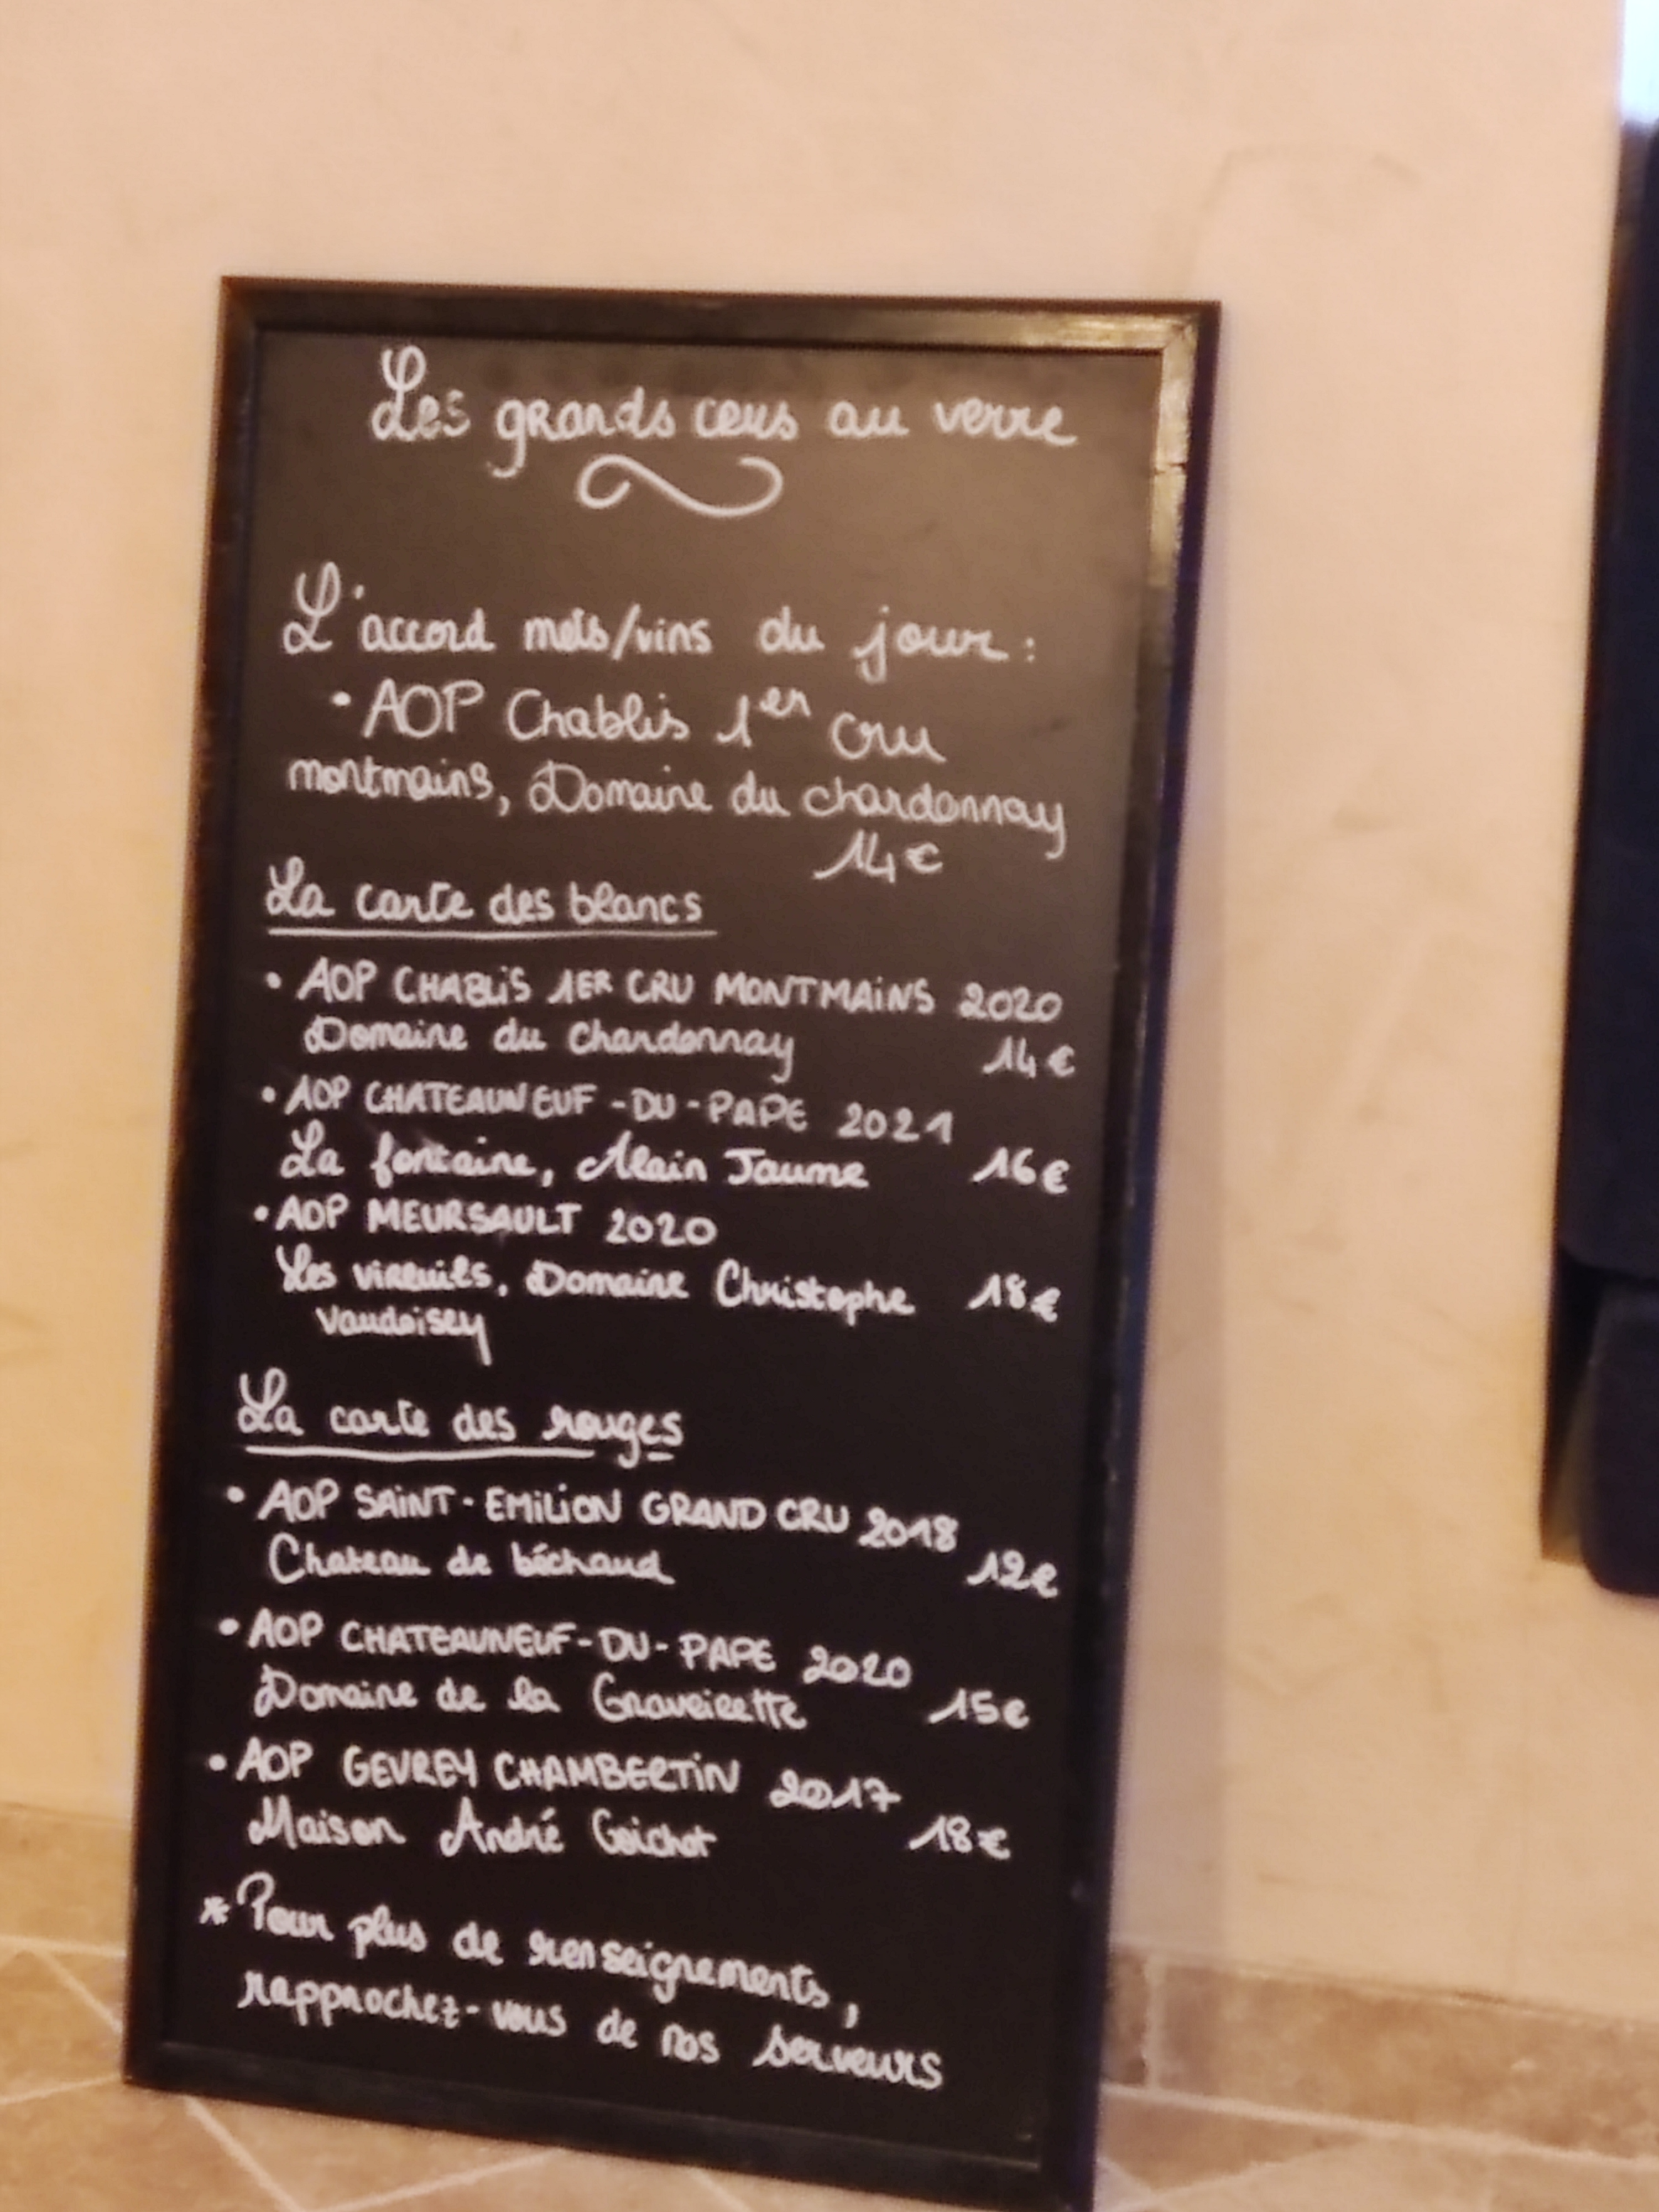 Les grands crus au verre
L'accord mets/vins du jour :
• AOP Chablis 1er cru
montmains, Domaine du chardonnay
14€
La carte des blancs
• AOP CHABLIS 1ER CRU MONTMAINS 2020
Domaine du Chardonnay 14€
• AOP CHATEAUNEUF-DU-PAPE 2021
La fontaine, Alain Jaume 16€
• AOP MEURSAULT 2020
Les vireuils, Domaine Christophe 18€
Vaudoisey
La carte des rouges
• AOP SAINT-EMILION GRAND CRU 2018
Chateau de béchaud 12€
• AOP CHATEAUNEUF-DU-PAPE 2020
Domaine de la Graveirette 15€
• AOP GEVREY CHAMBERTIN 2017
Maison André Goichot 18€
* Pour plus de renseignements,
rapprochez-vous de nos serveurs